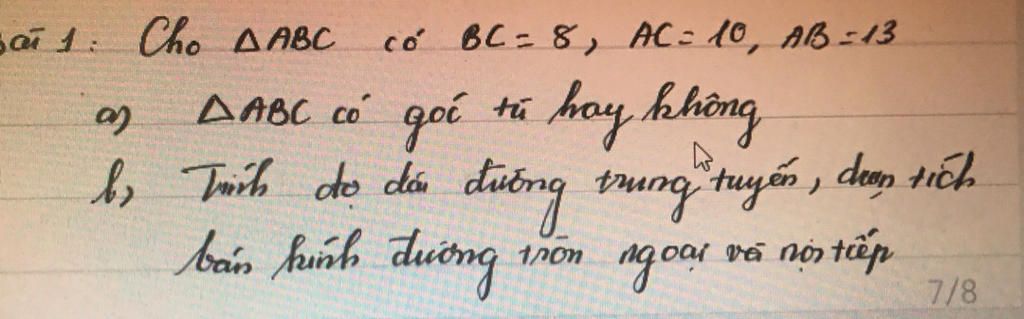 Bài 1: Cho △ABC có BC = 8, AC = 10, AB = 13
a) △ABC có góc tù hay không
b, Tính độ dài đường trung tuyến, diện tích
bán kính đường tròn ngoại và nội tiếp
7/8